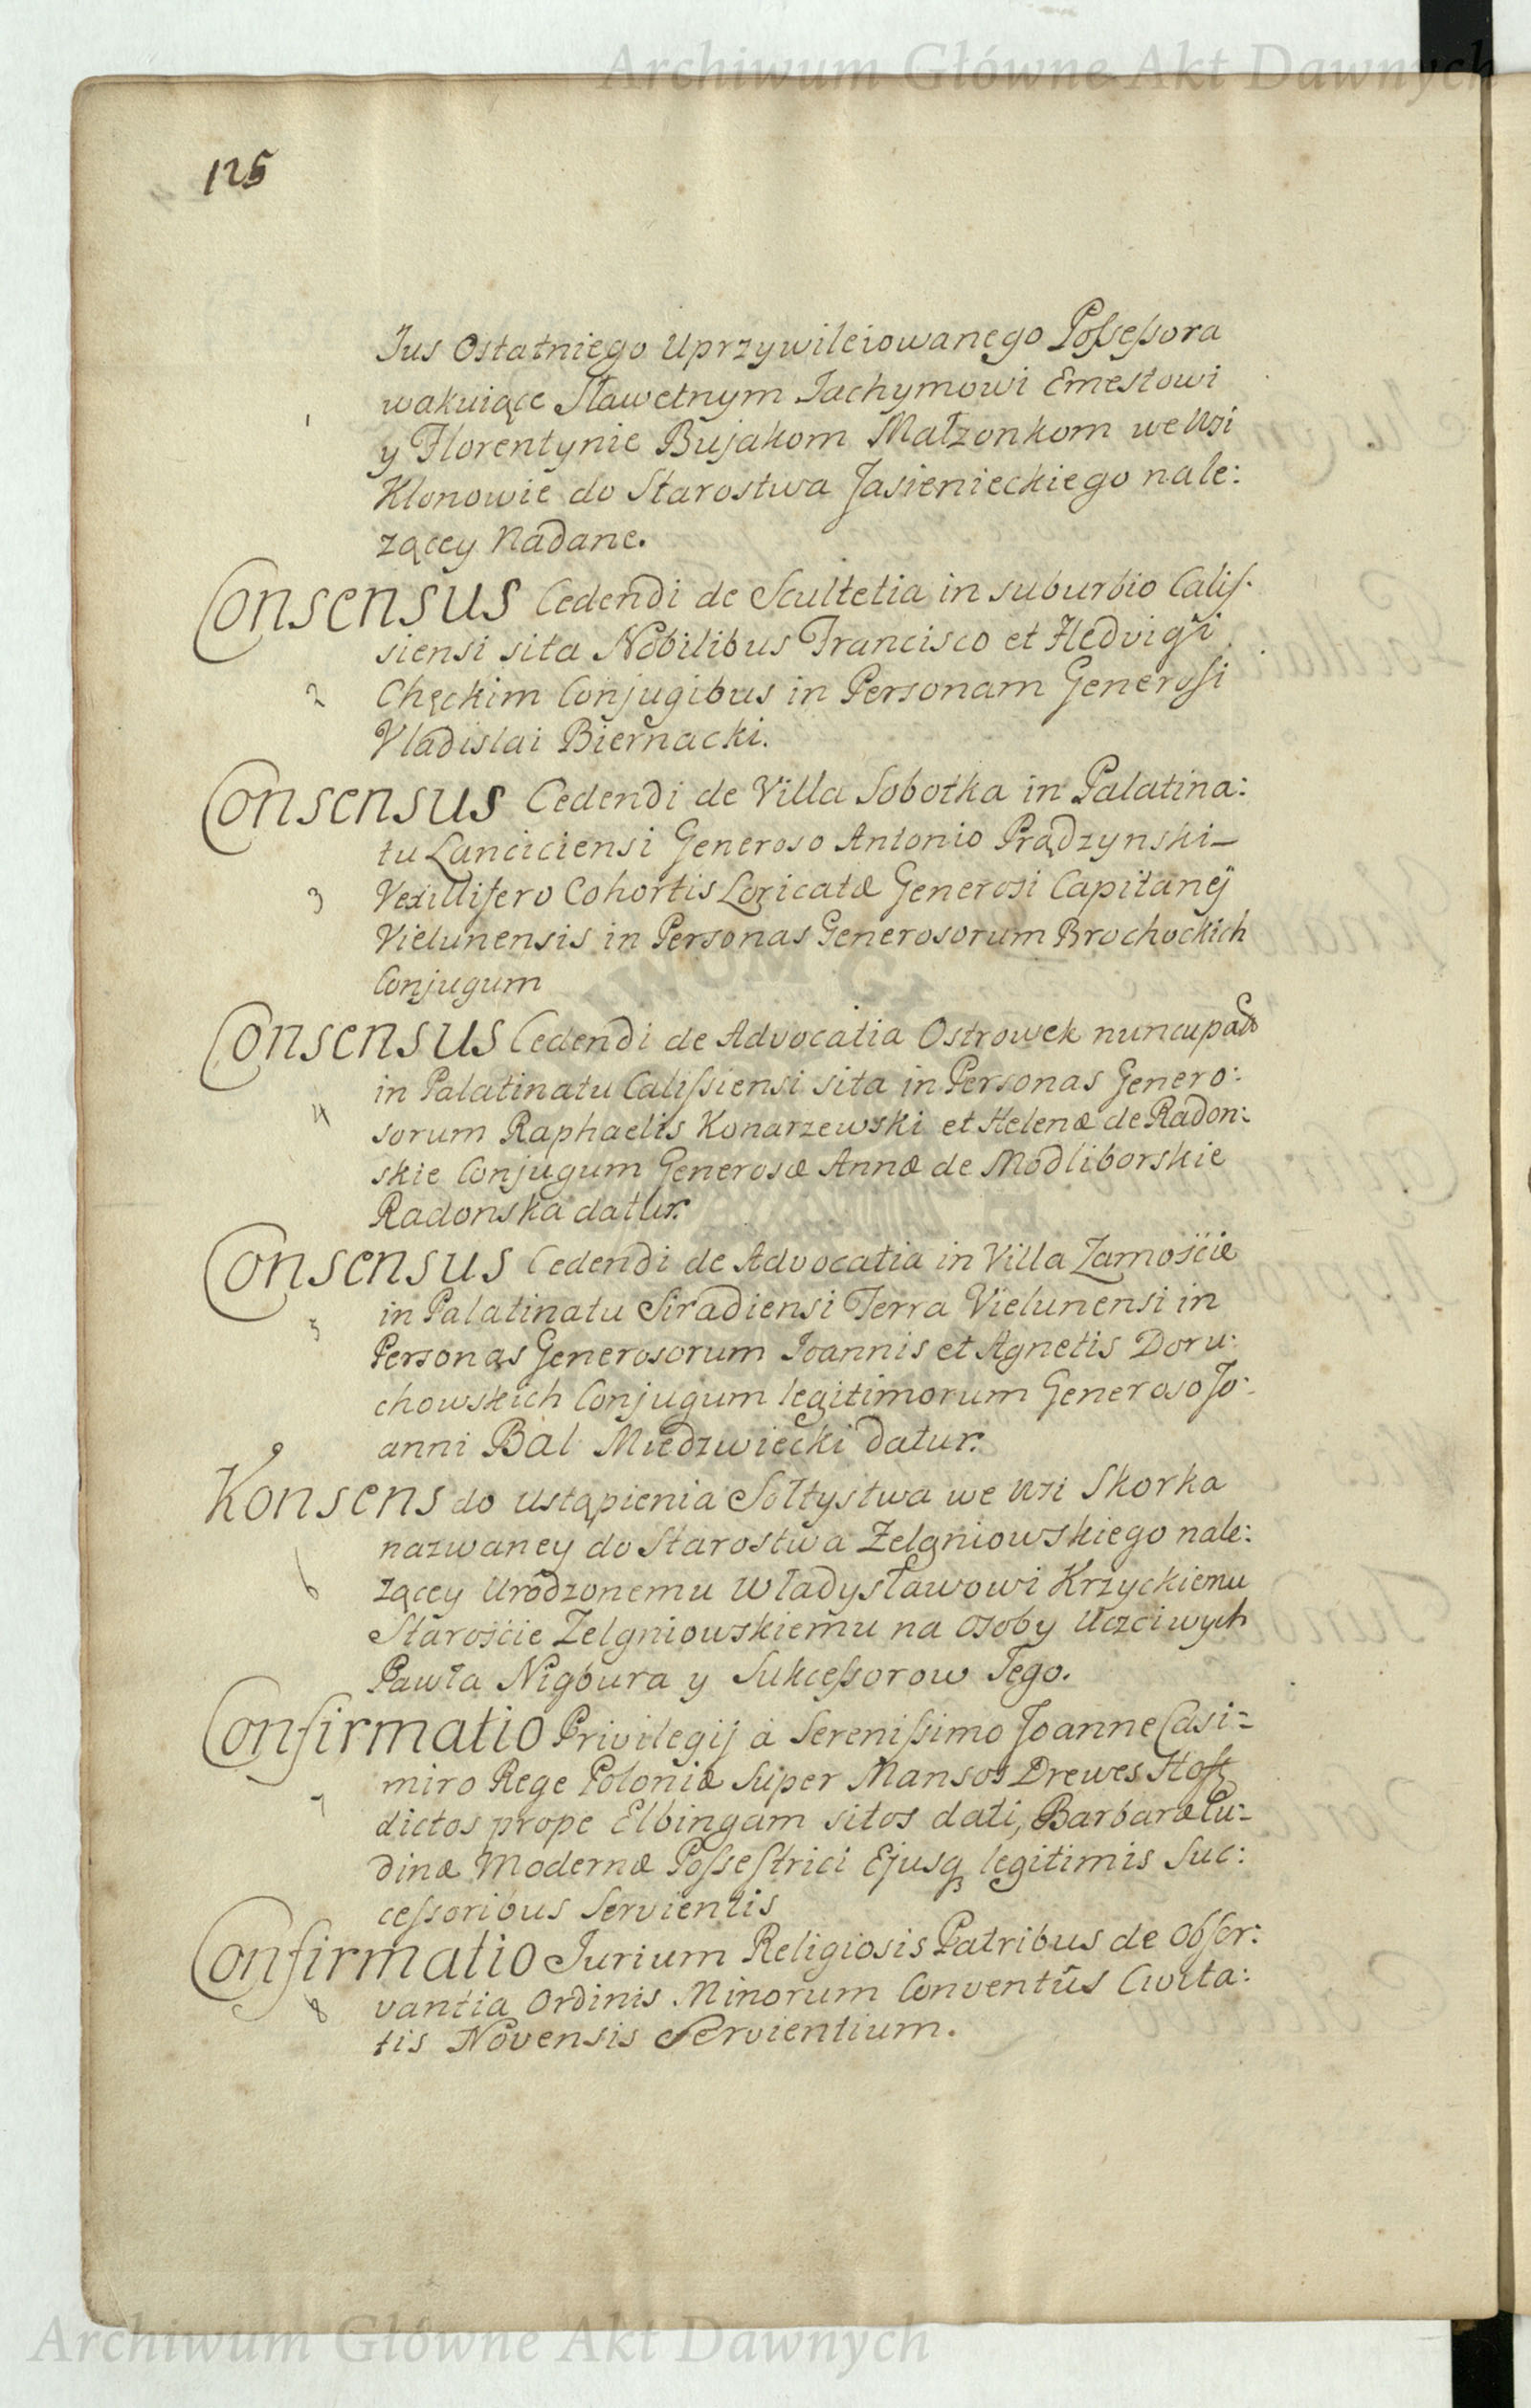 Archiwum Główne Akt Dawnych
125
Jus Ostatniego Uprzywileiowanego Possessora
1 wakuiące Sławetnym Jachymowi Ernestowi
y Florentynie Bujakom Małzonkom we Wsi
Klonowie do Starostwa Jasienieckiego nale:
zącey Nadane.
Consensus Cedendi de Scultetia in suburbio Calis:
siensi sita Nobilibus Francisco et Hedvigi
2 Chęckim Conjugibus in Personam Generosi
Vladislai Biernacki.
Consensus Cedendi de Villa Sobotka in Palatina:
tu Lanciciensi Generoso Antonio Prądzynski
3 Vexillifero Cohortis Loricatæ Generosi Capitanej
Vielunensis in Personas Generosorum Brochockich
Conjugum
Consensus Cedendi de Advocatia Ostrowek nuncupata
in Palatinatu Calissiensi sita in Personas Genero:
4 sorum Raphaelis Konarzewski et Helenæ de Radon:
skie Conjugum Generosæ Annæ de Modliborskie
Radonska datur.
Consensus Cedendi de Advocatia in Villa Zamoście
5 in Palatinatu Siradiensi Terra Vielunensi in
Personas Generosorum Joannis et Agnetis Doru:
chowskich Conjugum legitimorum Generoso Jo:
anni Bal Miedzwiecki datur.
Konsens do Ustąpienia Sołtystwa we Wsi Skorka
nazwaney do Starostwa Zelgniowskiego nale:
6 zącey Urodzonemu Władysławowi Krzyckiemu
Starościе Zelgniowskiemu na Osoby Uczciwych
Pawła Nigbura y Sukcessorow Jego.
Confirmatio Privilegij à Serenissimo Joanne Casi=
7 miro Rege Poloniæ Super Mansos Drewes Hoff
dictos prope Elbingam sitos dati, Barbaræ Lu=
dinæ Modernæ Possestrici Ejusq legitimis Suc:
cessoribus Servientis
Confirmatio Jurium Religiosis Patribus de Obser:
8 vantia Ordinis Minorum Conventûs Civita:
tis Novensis Servientium.
Archiwum Główne Akt Dawnych